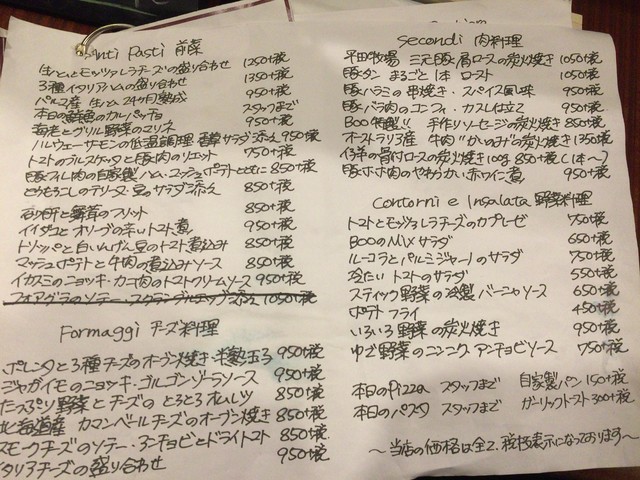 Anti Pasti 前菜
生ハムとモッツァレラチーズの盛り合わせ 1250+税
3種イタリアハムの盛り合わせ 1350+税
パルマ産 生ハム 24ヶ月熟成 950+税
本日の鮮魚のカルパッチョ スタッフまで
海老とグリル野菜のマリネ 950+税
ノルウェーサーモンの低温調理 香草サラダ添え 950+税
トマトのブルスケッタと豚肉のリエット 750+税
豚フィレ肉の自家製ハム・マッシュポテトとともに 850+税
とうもろこしのテリーヌ・豆のサラダ添え 850+税
砂肝と舞茸のフリット 850+税
イイダコとオリーブの辛いトマト煮 950+税
トリッパと白いんげん豆のトマト煮込み 850+税
マッシュポテトと牛肉の煮込みソース 850+税
イカスミのニョッキ・カニ肉のトマトクリームソース 950+税
フォアグラのソテー・スクランブルエッグ添え 1050+税
Formaggi チーズ料理
ポレンタと3種チーズのオーブン焼き・半熟玉子 950+税
ジャガイモのニョッキ・ゴルゴンゾーラソース 950+税
たっぷり野菜とチーズの とろとろオムレツ 850+税
北海道産 カマンベールチーズのオーブン焼き 850+税
スモークチーズのソテー・アンチョビとドライトマト 850+税
イタリアチーズの盛り合わせ 950+税
Secondi 肉料理
平田牧場 三元豚肩ロースの炭火焼き 1050+税
豚タン まるごと1本 ロースト 1050+税
豚ハラミの串焼き・スパイス風味 950+税
豚バラ肉のコンフィ・カスレ仕立て 950+税
Boo特製!! 手作りソーセージの炭火焼き 850+税
オーストラリア産 牛肉"かいのみ"の炭火焼き 1350+税
仔羊の骨付ロースの炭火焼き 100g 850+税 (1本〜)
豚ホホ肉のやわらかい赤ワイン煮 950+税
Contorni e Insalata 野菜料理
トマトとモッツァレラチーズのカプレーゼ 750+税
BooのMixサラダ 650+税
ルーコラとパルミジャーノのサラダ 750+税
冷たい トマトのサラダ 550+税
スティック野菜の冷製 バーニャソース 650+税
ポテト フライ 450+税
いろいろ野菜の炭火焼き 950+税
ゆで野菜のニンニク アンチョビソース 750+税
本日のPizza スタッフまで 自家製パン 150+税
本日のパスタ スタッフまで ガーリックトースト 300+税
〜当店の価格は全て、税抜表示になっております〜